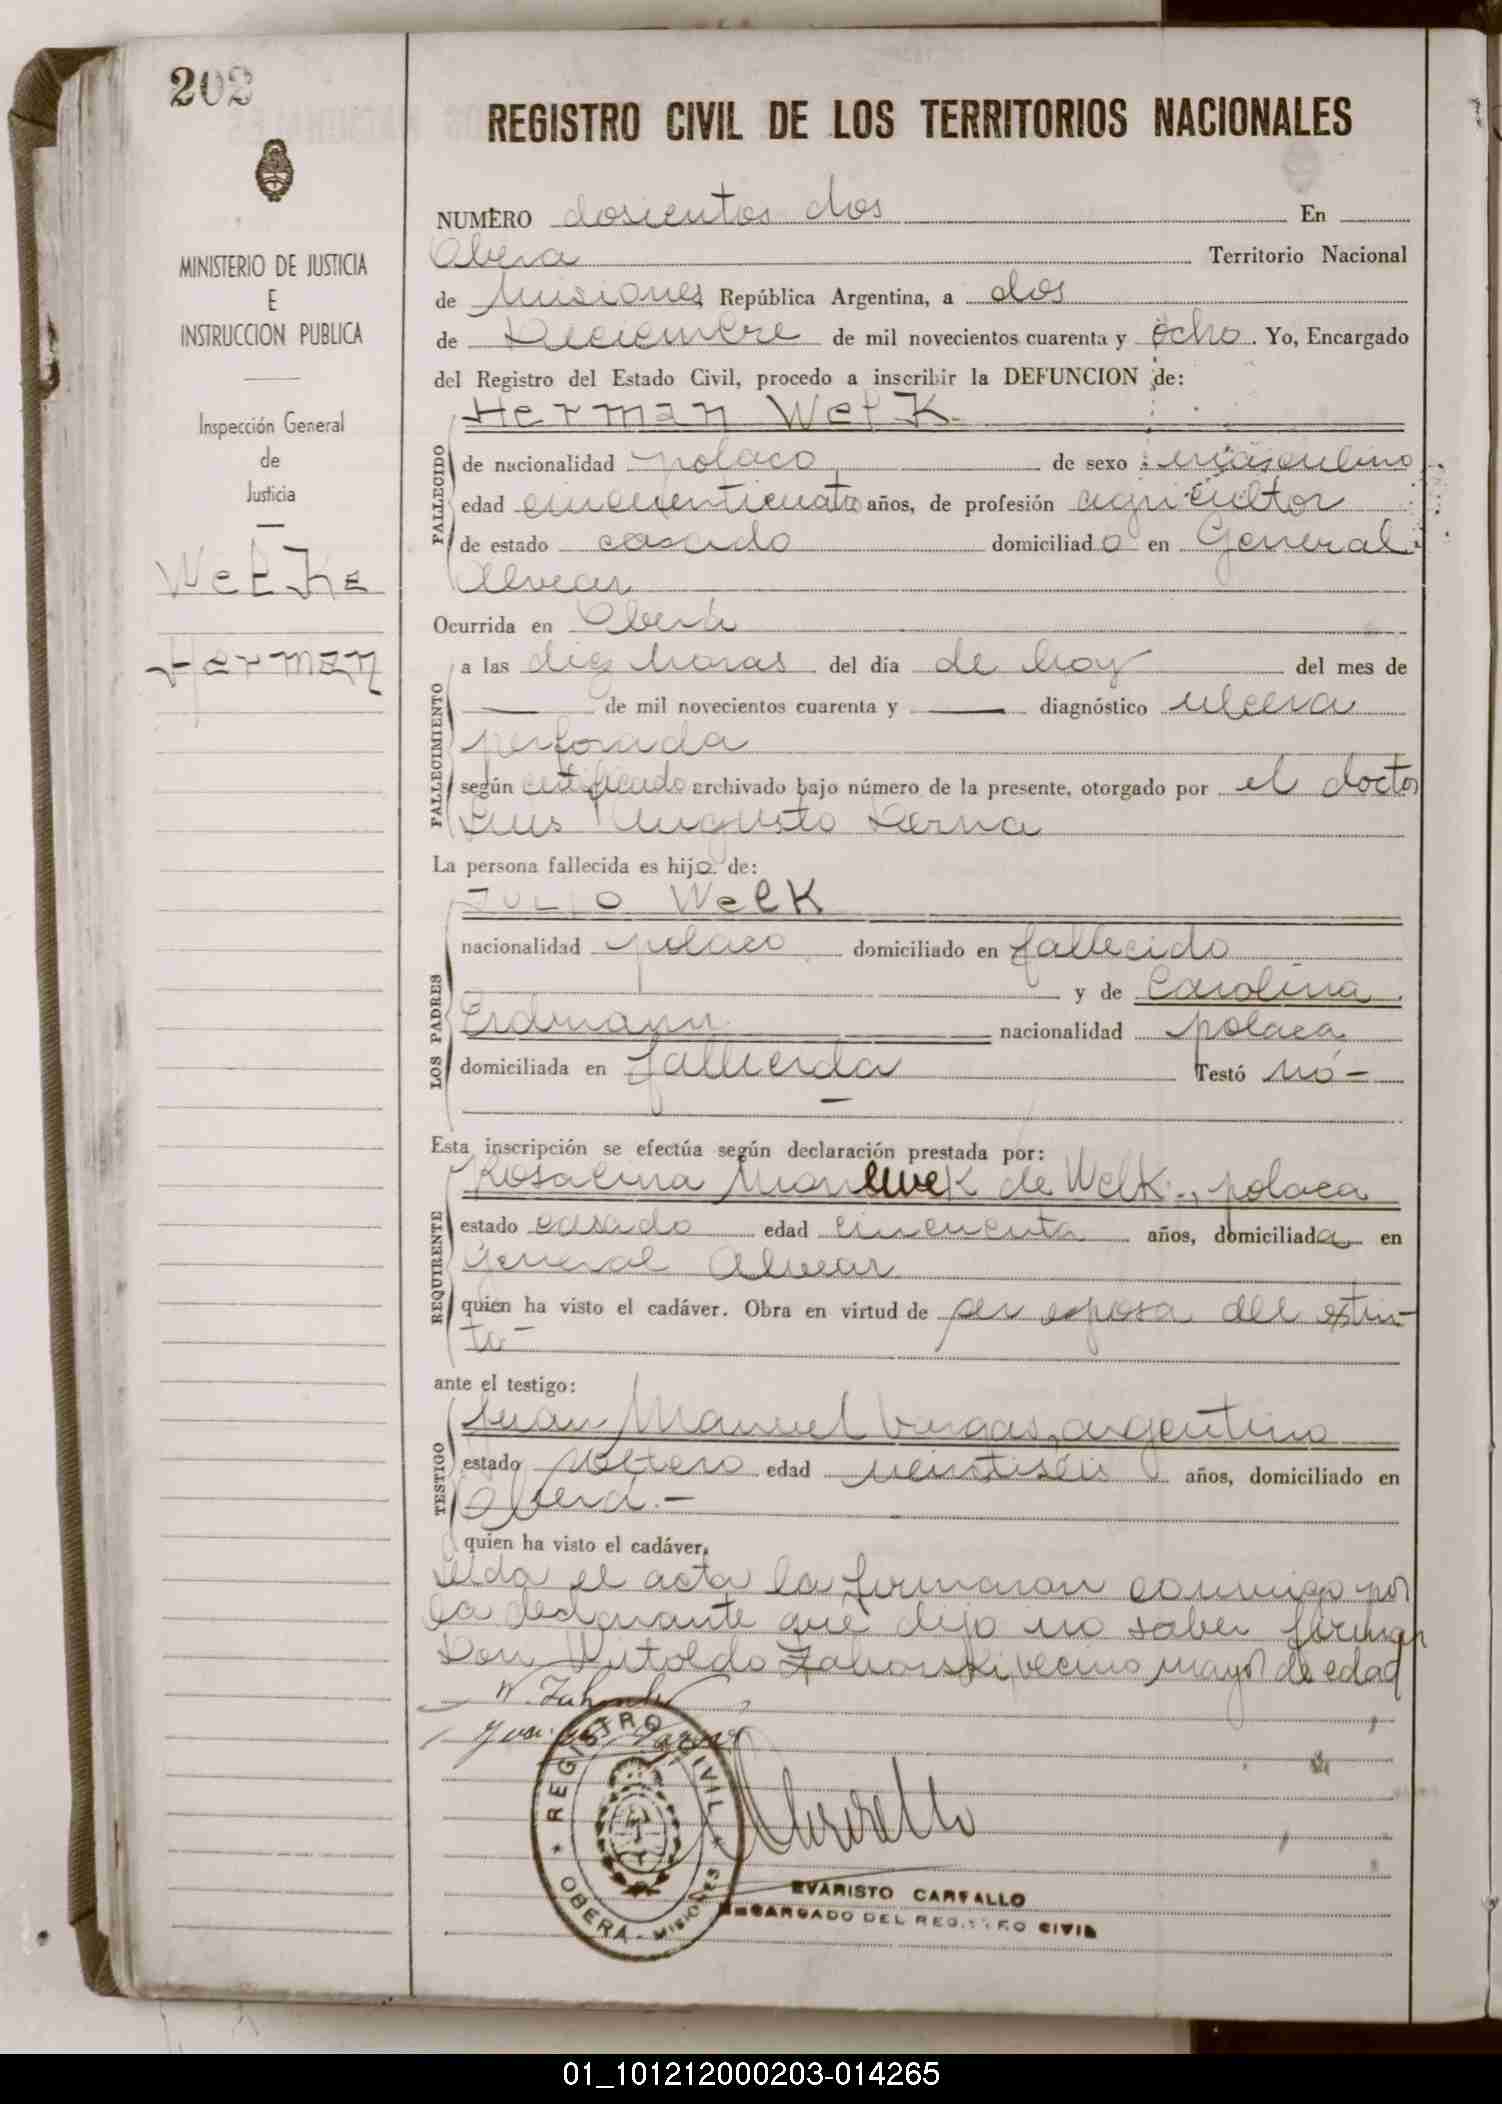 202
REGISTRO CIVIL DE LOS TERRITORIOS NACIONALES
MINISTERIO DE JUSTICIA
E
INSTRUCCION PUBLICA
Inspección General
de
Justicia
Welke
Herman
NUMERO dosientos dos En
Obera Territorio Nacional
de Misiones, República Argentina, a dos
de Diciembre de mil novecientos cuarenta y ocho. Yo, Encargado
del Registro del Estado Civil, procedo a inscribir la DEFUNCION de:
Herman Welk
FALLECIDO
de nacionalidad polaco de sexo masculino
edad cincuenticuatro años, de profesión agricultor
de estado casado domiciliado en General
Alvear
Ocurrida en Oberá
FALLECIMIENTO
a las diez horas del día de hoy del mes de
— de mil novecientos cuarenta y — diagnóstico ulcera
perforada
según certificado archivado bajo número de la presente, otorgado por el doctor
Luis Augusto Derna
La persona fallecida es hijo de:
LOS PADRES
Julio Welk
nacionalidad polaco domiciliado en fallecido
y de Carolina
Erdmann nacionalidad polaca
domiciliada en fallecida Testó nó —
—
Esta inscripción se efectúa según declaración prestada por:
REQUIRENTE
Rosalina de Welk., polaca
estado casado edad cincuenta años, domiciliada en
General Alvear
quien ha visto el cadáver. Obra en virtud de ser esposa del extin-
to —
ante el testigo:
TESTIGO
Juan Manuel Vargas, argentino
estado soltero edad veintiséis años, domiciliado en
Oberá. —
quien ha visto el cadáver.
Leida el acta la firmaron conmigo por
la declarante que dijo no saber firmar
Don Witoldo Zahorski, vecino mayor de edad
REGISTRO CIVIL
OBERÁ - MISIONES
EVARISTO CARFALLO
ENCARGADO DEL REGISTRO CIVIL
01_101212000203-014265